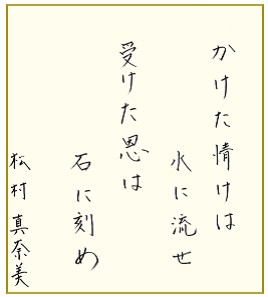 かけた情けは
水に流せ
受けた恩は
石に刻め
松村 真奈美